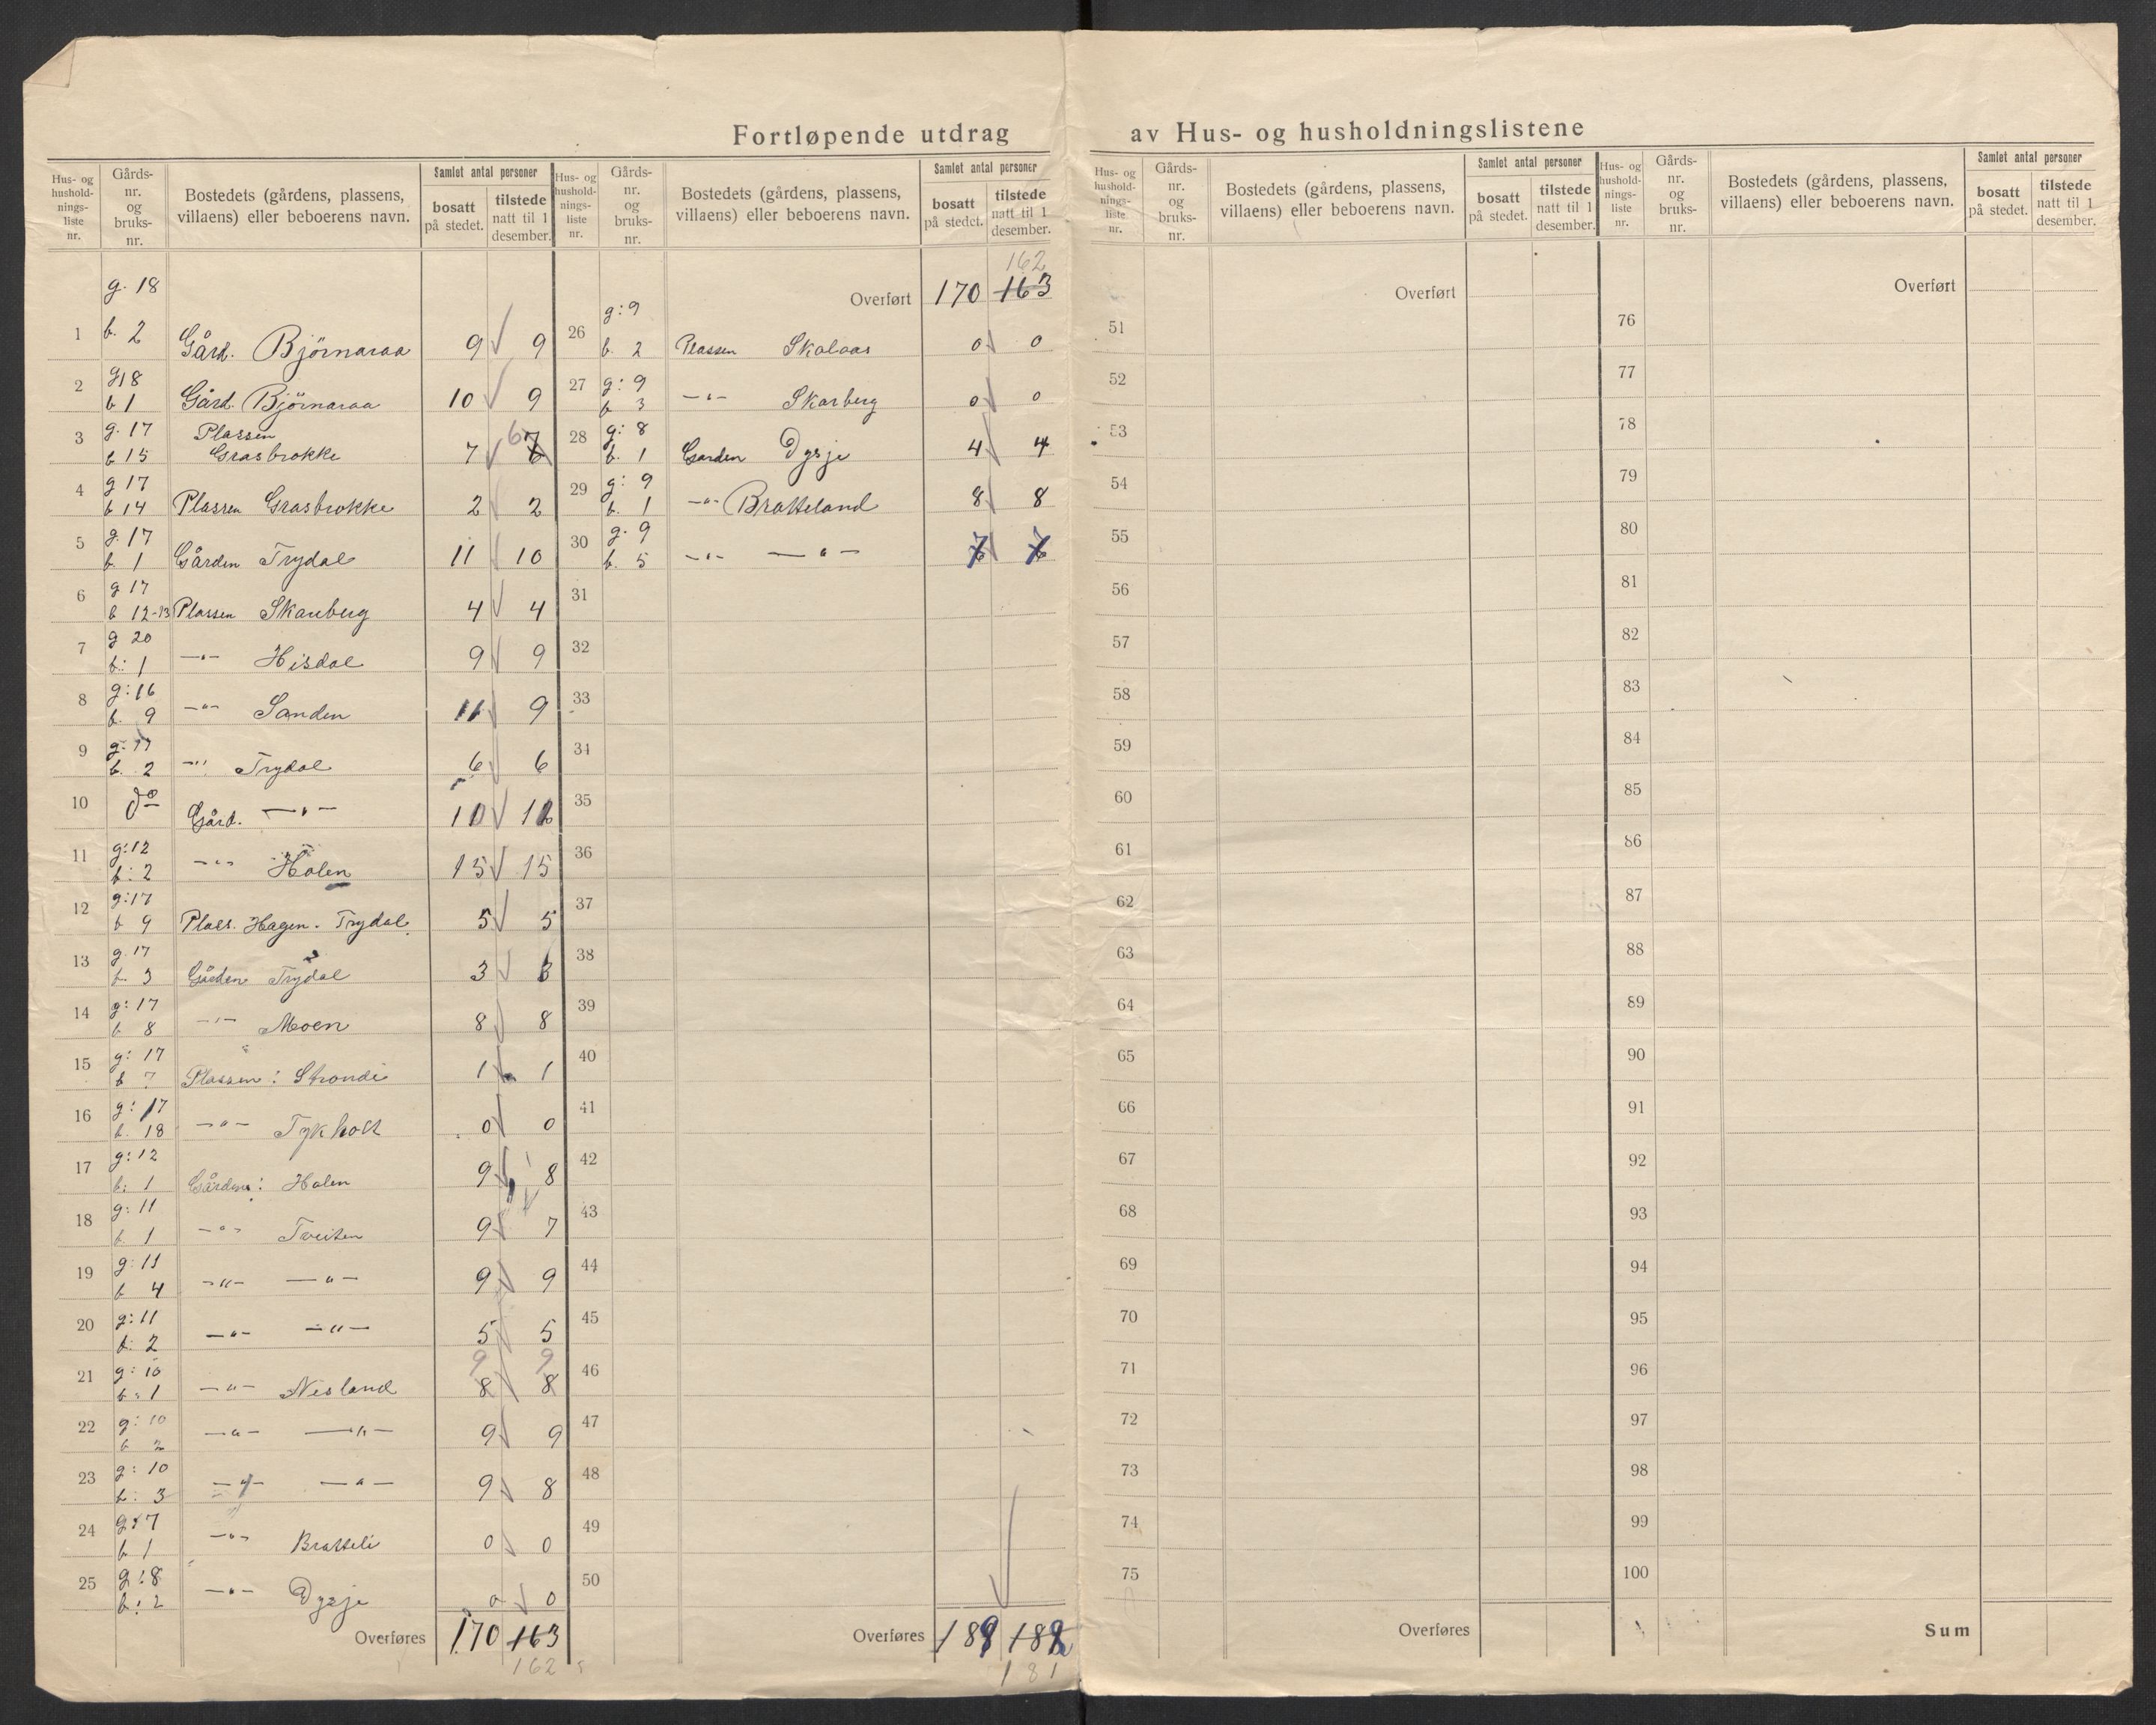 Fortløpende utdrag av Hus- og husholdningslistene
Hus- og hushold-nings-liste nr. Gårds-nr. og bruks-nr. Bostedets (gårdens, plassens, villaens) eller beboerens navn. Samlet antal personer bosatt på stedet. tilstede natt til 1 desember.
g. 18
1 b. 2 Gård. Björnaraa 9 9
2 g18 b 1 Gård. Björnaraa 10 9
3 g. 17 b 15 Plassen Grasbrokke 7 6 7
4 g 17 b 14 Plassen Grasbrokke 2 2
5 g. 17 b. 1 Gården Trydal 11 10
6 g 17 b 12-13 Plassen Skarberg 4 4
7 g 20 b: 1 -"- Hisdal 9 9
8 g: 16 b. 9 -"- Sanden 11 9
9 g. 17 b. 2 -"- Trydal 6 6
10 do Gård. -"- 10
11 g: 12 b: 2 -"- Holen 15 15
12 g: 17 b 9 Plass. Hagen - Trydal 5 5
13 g. 17 b. 3 Gården Trydal 3 3
14 g: 17 b 8 -"- Moen 8 8
15 g: 17 b 7 Plassen: Strondi 1 1
16 g: 17 b. 18 -"- Tykholt 0 0
17 g: 12 b: 1 Gården: Holen 9 8
18 g: 11 b. 1 -"- Tveiten 9 7
19 g: 11 b 4 -"- -"- 9 9
20 g: 11 b: 2 -"- -"- 5 5
21 g: 10 b: 1 -"- Nesland 9 9 8 8
22 g: 10 b 2 -"- -"- 9 9
23 g: 10 b: 3 -"- -"- 9 8
24 g: 7 b 1 -"- Bratteli 0 0
25 g: 8 b: 2 -"- Dysje 0 0
Overføres 170 163
162
Hus- og hushold-nings-liste nr. Gårds-nr. og bruks-nr. Bostedets (gårdens, plassens, villaens) eller beboerens navn. Samlet antal personer bosatt på stedet. tilstede natt til 1 desember.
162
Overført 170 163
26 g: 9 b. 2 Plassen Skalaas 0 0
27 g: 9 b 3 -"- Skarberg 0 0
28 g: 8 b. 1 Garden Dysje 4 4
29 g: 9 b. 1 -"- Bratteland 8 8
30 g. 9 b. 5 -"- -"- 7 7
31
32
33
34
35
36
37
38
39
40
41
42
43
44
45
46
47
48
49
50
Overføres 189 182
181
Hus- og hushold-nings-liste nr. Gårds-nr. og bruks-nr. Bostedets (gårdens, plassens, villaens) eller beboerens navn. Samlet antal personer bosatt på stedet. tilstede natt til 1 desember.
Overført
51
52
53
54
55
56
57
58
59
60
61
62
63
64
65
66
67
68
69
70
71
72
73
74
75
Overføres
Hus- og hushold-nings-liste nr. Gårds-nr. og bruks-nr. Bostedets (gårdens, plassens, villaens) eller beboerens navn. Samlet antal personer bosatt på stedet. tilstede natt til 1 desember.
Overført
76
77
78
79
80
81
82
83
84
85
86
87
88
89
90
91
92
93
94
95
96
97
98
99
100
Sum